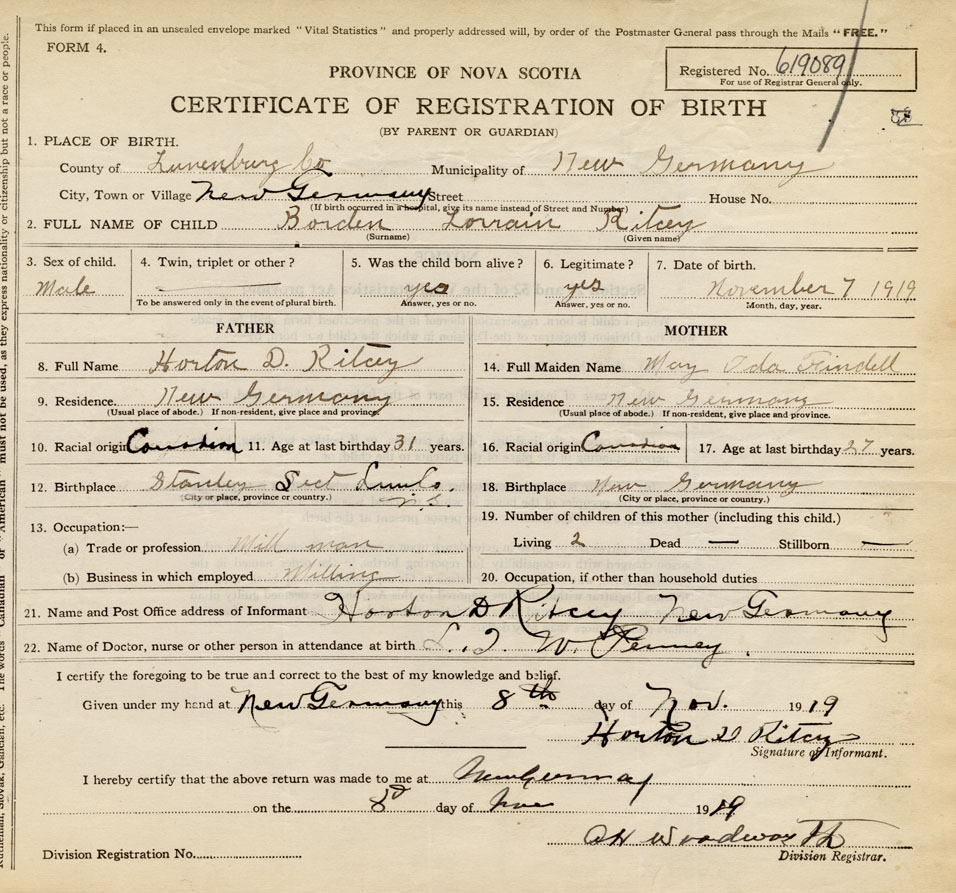 This form if placed in an unsealed envelope marked "Vital Statistics" and properly addressed will, by order of the Postmaster General pass through the Mails "FREE."
FORM 4.
PROVINCE OF NOVA SCOTIA
Registered No. 619089
For use of Registrar General only.
CERTIFICATE OF REGISTRATION OF BIRTH
(BY PARENT OR GUARDIAN)
1. PLACE OF BIRTH.
County of Lunenburg Co Municipality of New Germany
City, Town or Village New Germany Street House No.
(If birth occurred in a hospital, give its name instead of Street and Number)
2. FULL NAME OF CHILD Borden Lorrain Ritcey
(Surname) (Given name)
3. Sex of child. 4. Twin, triplet or other? 5. Was the child born alive? 6. Legitimate? 7. Date of birth.
Male yes yes November 7 1919
To be answered only in the event of plural birth. Answer, yes or no. Answer, yes or no. Month, day, year.
FATHER
8. Full Name Horton D. Ritcey
9. Residence. New Germany
(Usual place of abode.) If non-resident, give place and province.
10. Racial origin Canadian 11. Age at last birthday 31 years.
12. Birthplace Stanley Sect
(City or place, province or country.)
N.S.
13. Occupation:—
(a) Trade or profession Mill man
(b) Business in which employed Milling
MOTHER
14. Full Maiden Name May Ida
15. Residence New Germany
(Usual place of abode.) If non-resident, give place and province.
16. Racial origin Canadian 17. Age at last birthday 27 years.
18. Birthplace New Germany
(City or place, province or country.)
19. Number of children of this mother (including this child.)
Living 2 Dead — Stillborn —
20. Occupation, if other than household duties
21. Name and Post Office address of Informant Horton D Ritcey New Germany
22. Name of Doctor, nurse or other person in attendance at birth W. Penney
I certify the foregoing to be true and correct to the best of my knowledge and belief.
Given under my hand at New Germany this 8th day of Nov. 1919
Horton D Ritcey
Signature of Informant.
I hereby certify that the above return was made to me at New Germany
on the 8 day of Nov 1919
Woodworth
Division Registration No. Division Registrar.
must not be used, as they express nationality or citizenship but not a race or people.
Ruthenian, Slovak, Galician, etc. The words "Canadian" or "American"